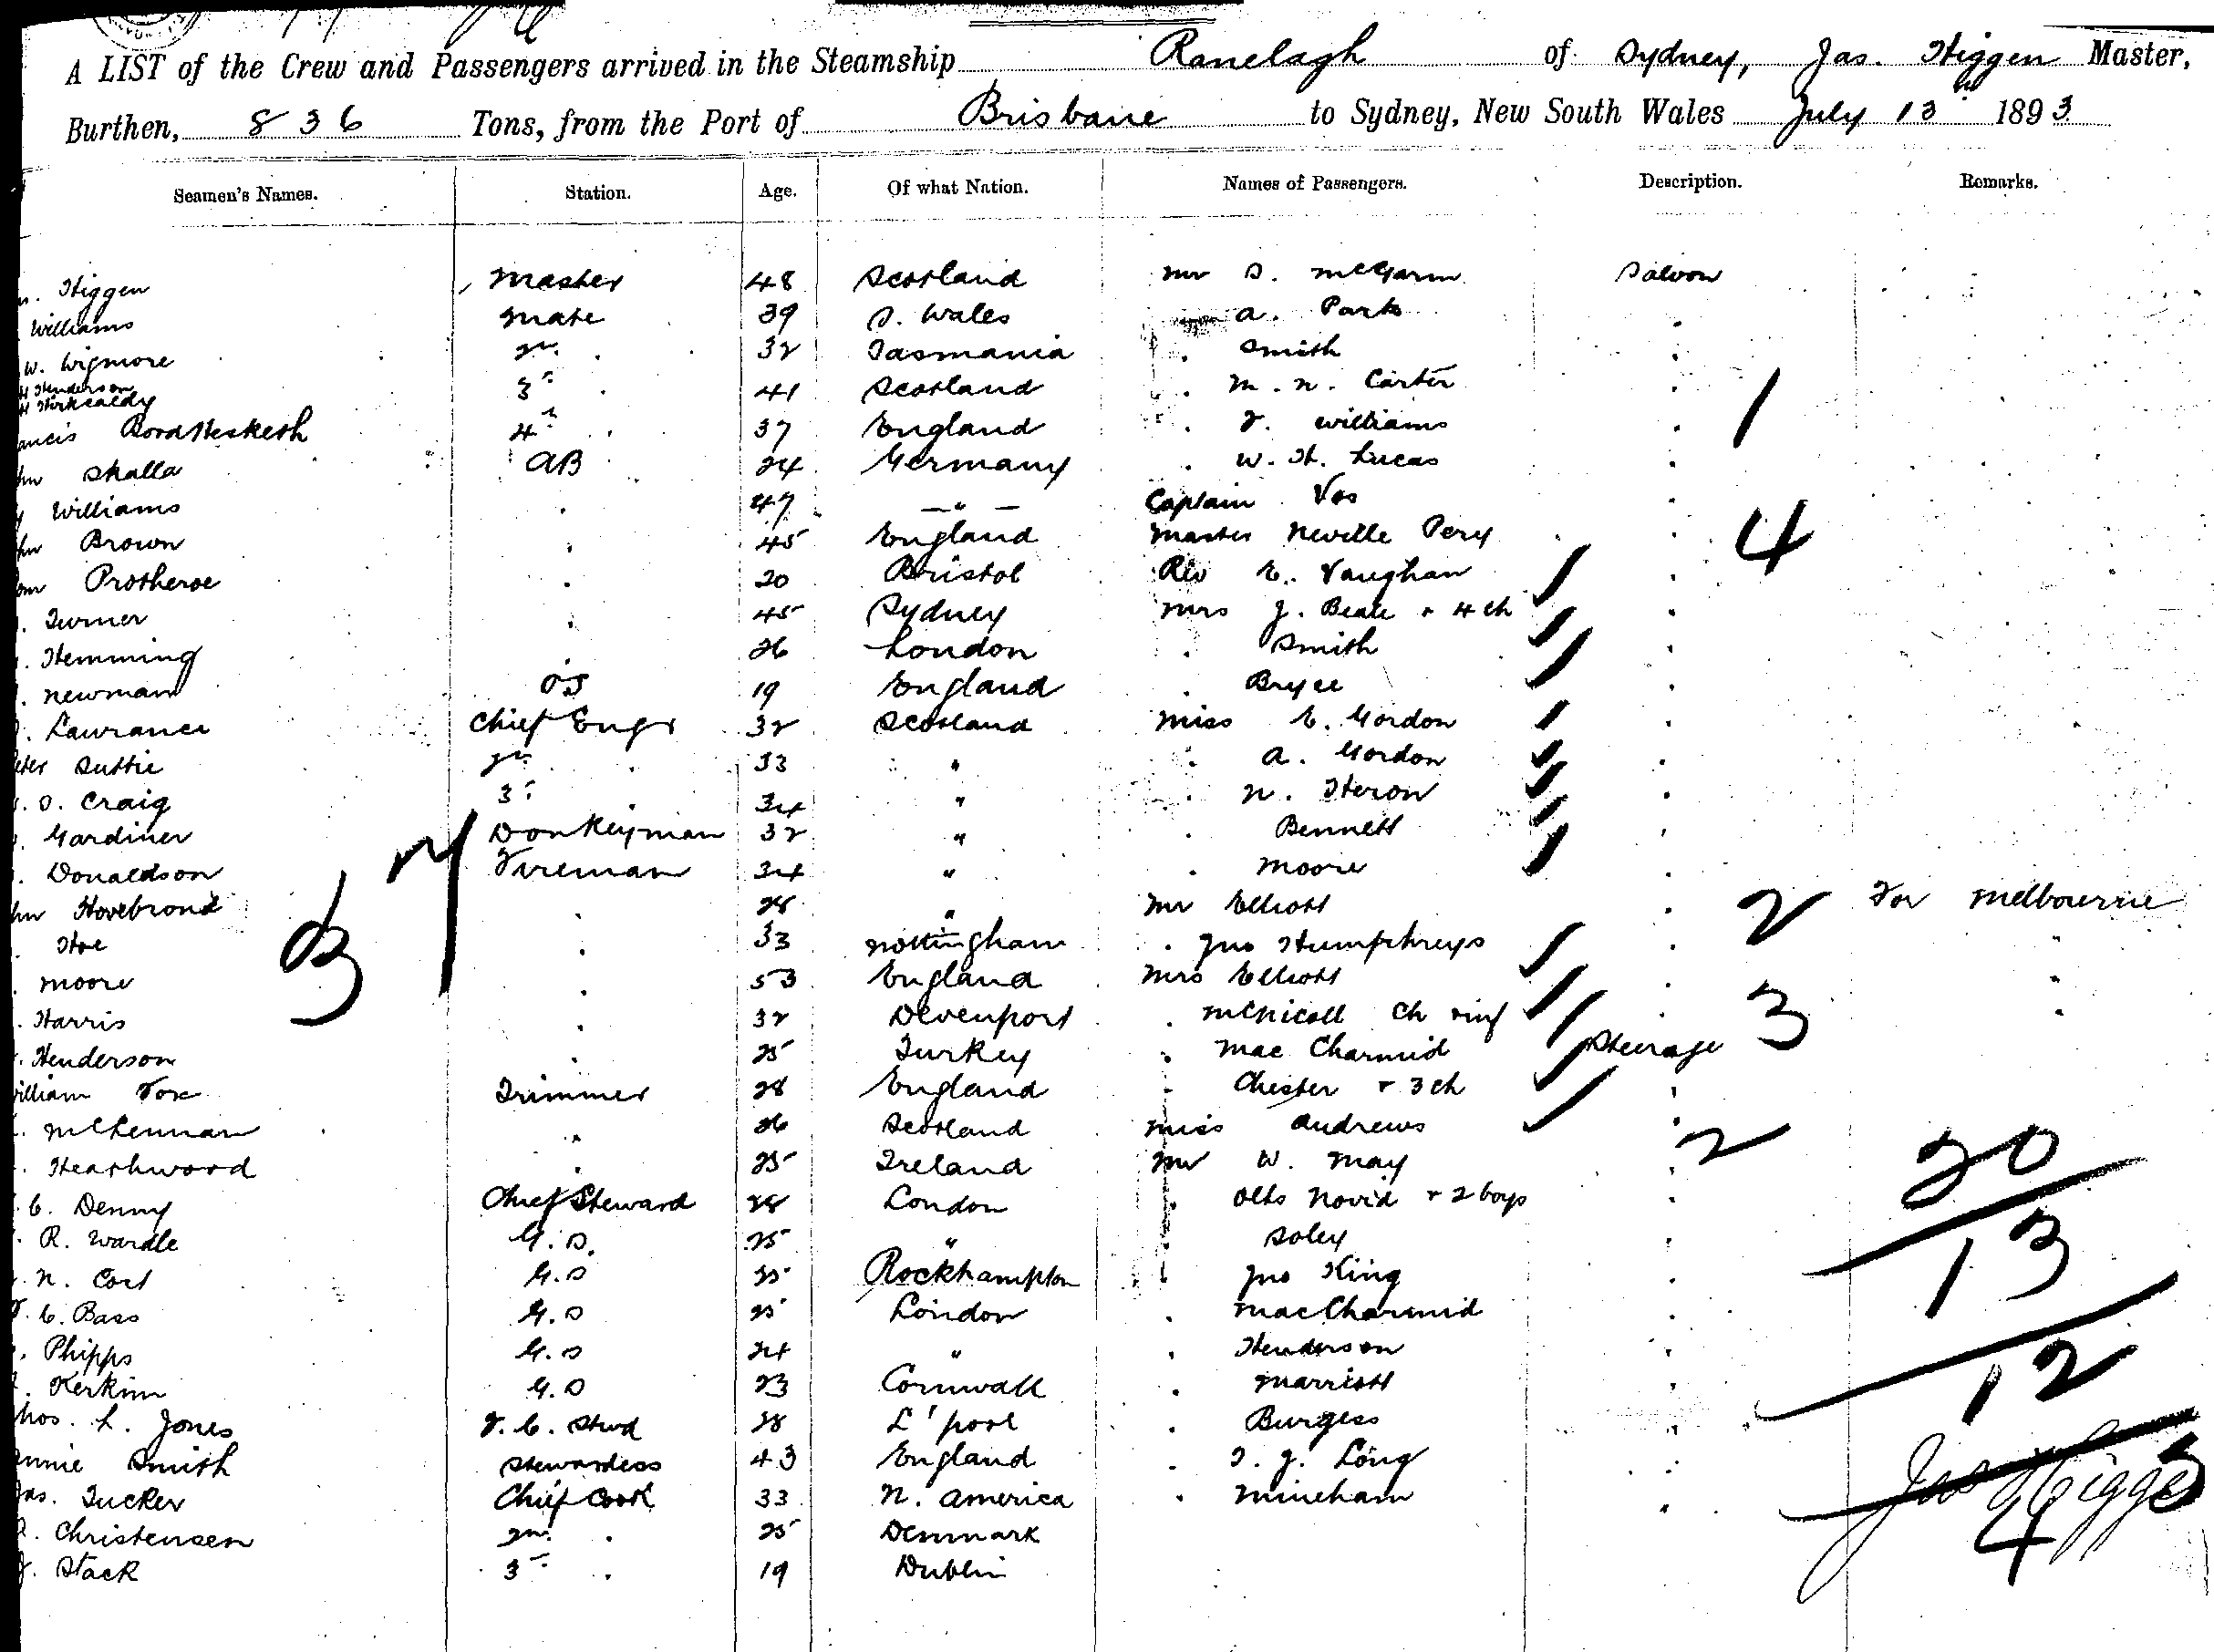 A LIST of the Crew and Passengers arrived in the Steamship Ranelagh of Sydney, Jas. Higgen Master,
Burthen, 836 Tons, from the Port of Brisbane to Sydney, New South Wales July 13th 1893
Seamen's Names. Station. Age. Of what Nation. Names of Passengers. Description. Remarks.
Higgen Master 48 Scotland Mr S. McGarm Saloon
Williams Mate 39 S. Wales " A. Park "
W. Wigmore 2nd " 32 Tasmania " Smith "
Henderson
Kirkcaldy 3rd " 41 Scotland " M. N. Carter "
ancis Hesketh 4th " 37 England " F. Williams " 1
hn Skalla AB 24 Germany " W. H. Lucas "
y Williams " 47 — " — Captain Vos "
hn Brown " 45 England Master Neville Pery " 4
om Protheroe " 20 Bristol Rev E. Vaughan "
Turner " 45 Sydney Mrs J. Beale + 4 ch "
Hemming " 26 London " Smith "
Newman OS 19 England " Bryce "
Lawrance Chief Engr 32 Scotland Miss E. Gordon "
eter Suttie 2nd " 33 " " A. Gordon "
S. Craig 3rd " 34 " " N. Heron "
Gardiner Donkeyman 32 " " Bennett "
Donaldson Fireman 34 " " Moore "
hn Hovebrond " 28 " Mr Elliott " 2 For Melbourne
Hoe " 33 Nottingham " Jno Humphreys " "
Moore " 53 England Mrs Elliott " "
Harris " 32 Devenport " McNicoll Ch inf " 3 "
Henderson " 25 Turkey " Mac Charmid Steerage
illiam Fox Trimmer 28 England " Chester + 3 ch "
McLennan " 26 Scotland Miss Andrews "
Heathwood " 25 Ireland Mr W. May " 2 20
C. Denny Chief Steward 28 London " Novid + 2 boys "
R. Wardle G.S. 25 " " Soley "
N. Cort G.S 25 Rockhampton " Jno King " 13
C. Bass G.S 25 London " MacCharmid "
Phipps G.S 24 " " Henderson "
Kerkin G.S 23 Cornwall " Marriott " 12
hos. L. Jones F.C. Stwd 28 L'pool " Burgess "
nnie Smith Stewardess 43 England " T. J. Long "
as. Tucker Chief Cook 33 N. America " Mineham " Jas Higgen
Christensen 2nd " 25 Denmark 4
J. Stack 3rd " 19 Dublin